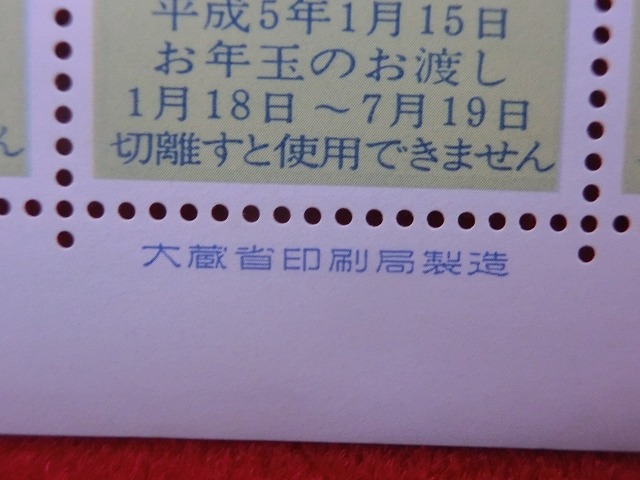 平成5年1月15日
お年玉のお渡し
1月18日～7月19日
切離すと使用できません
ん
大蔵省印刷局製造